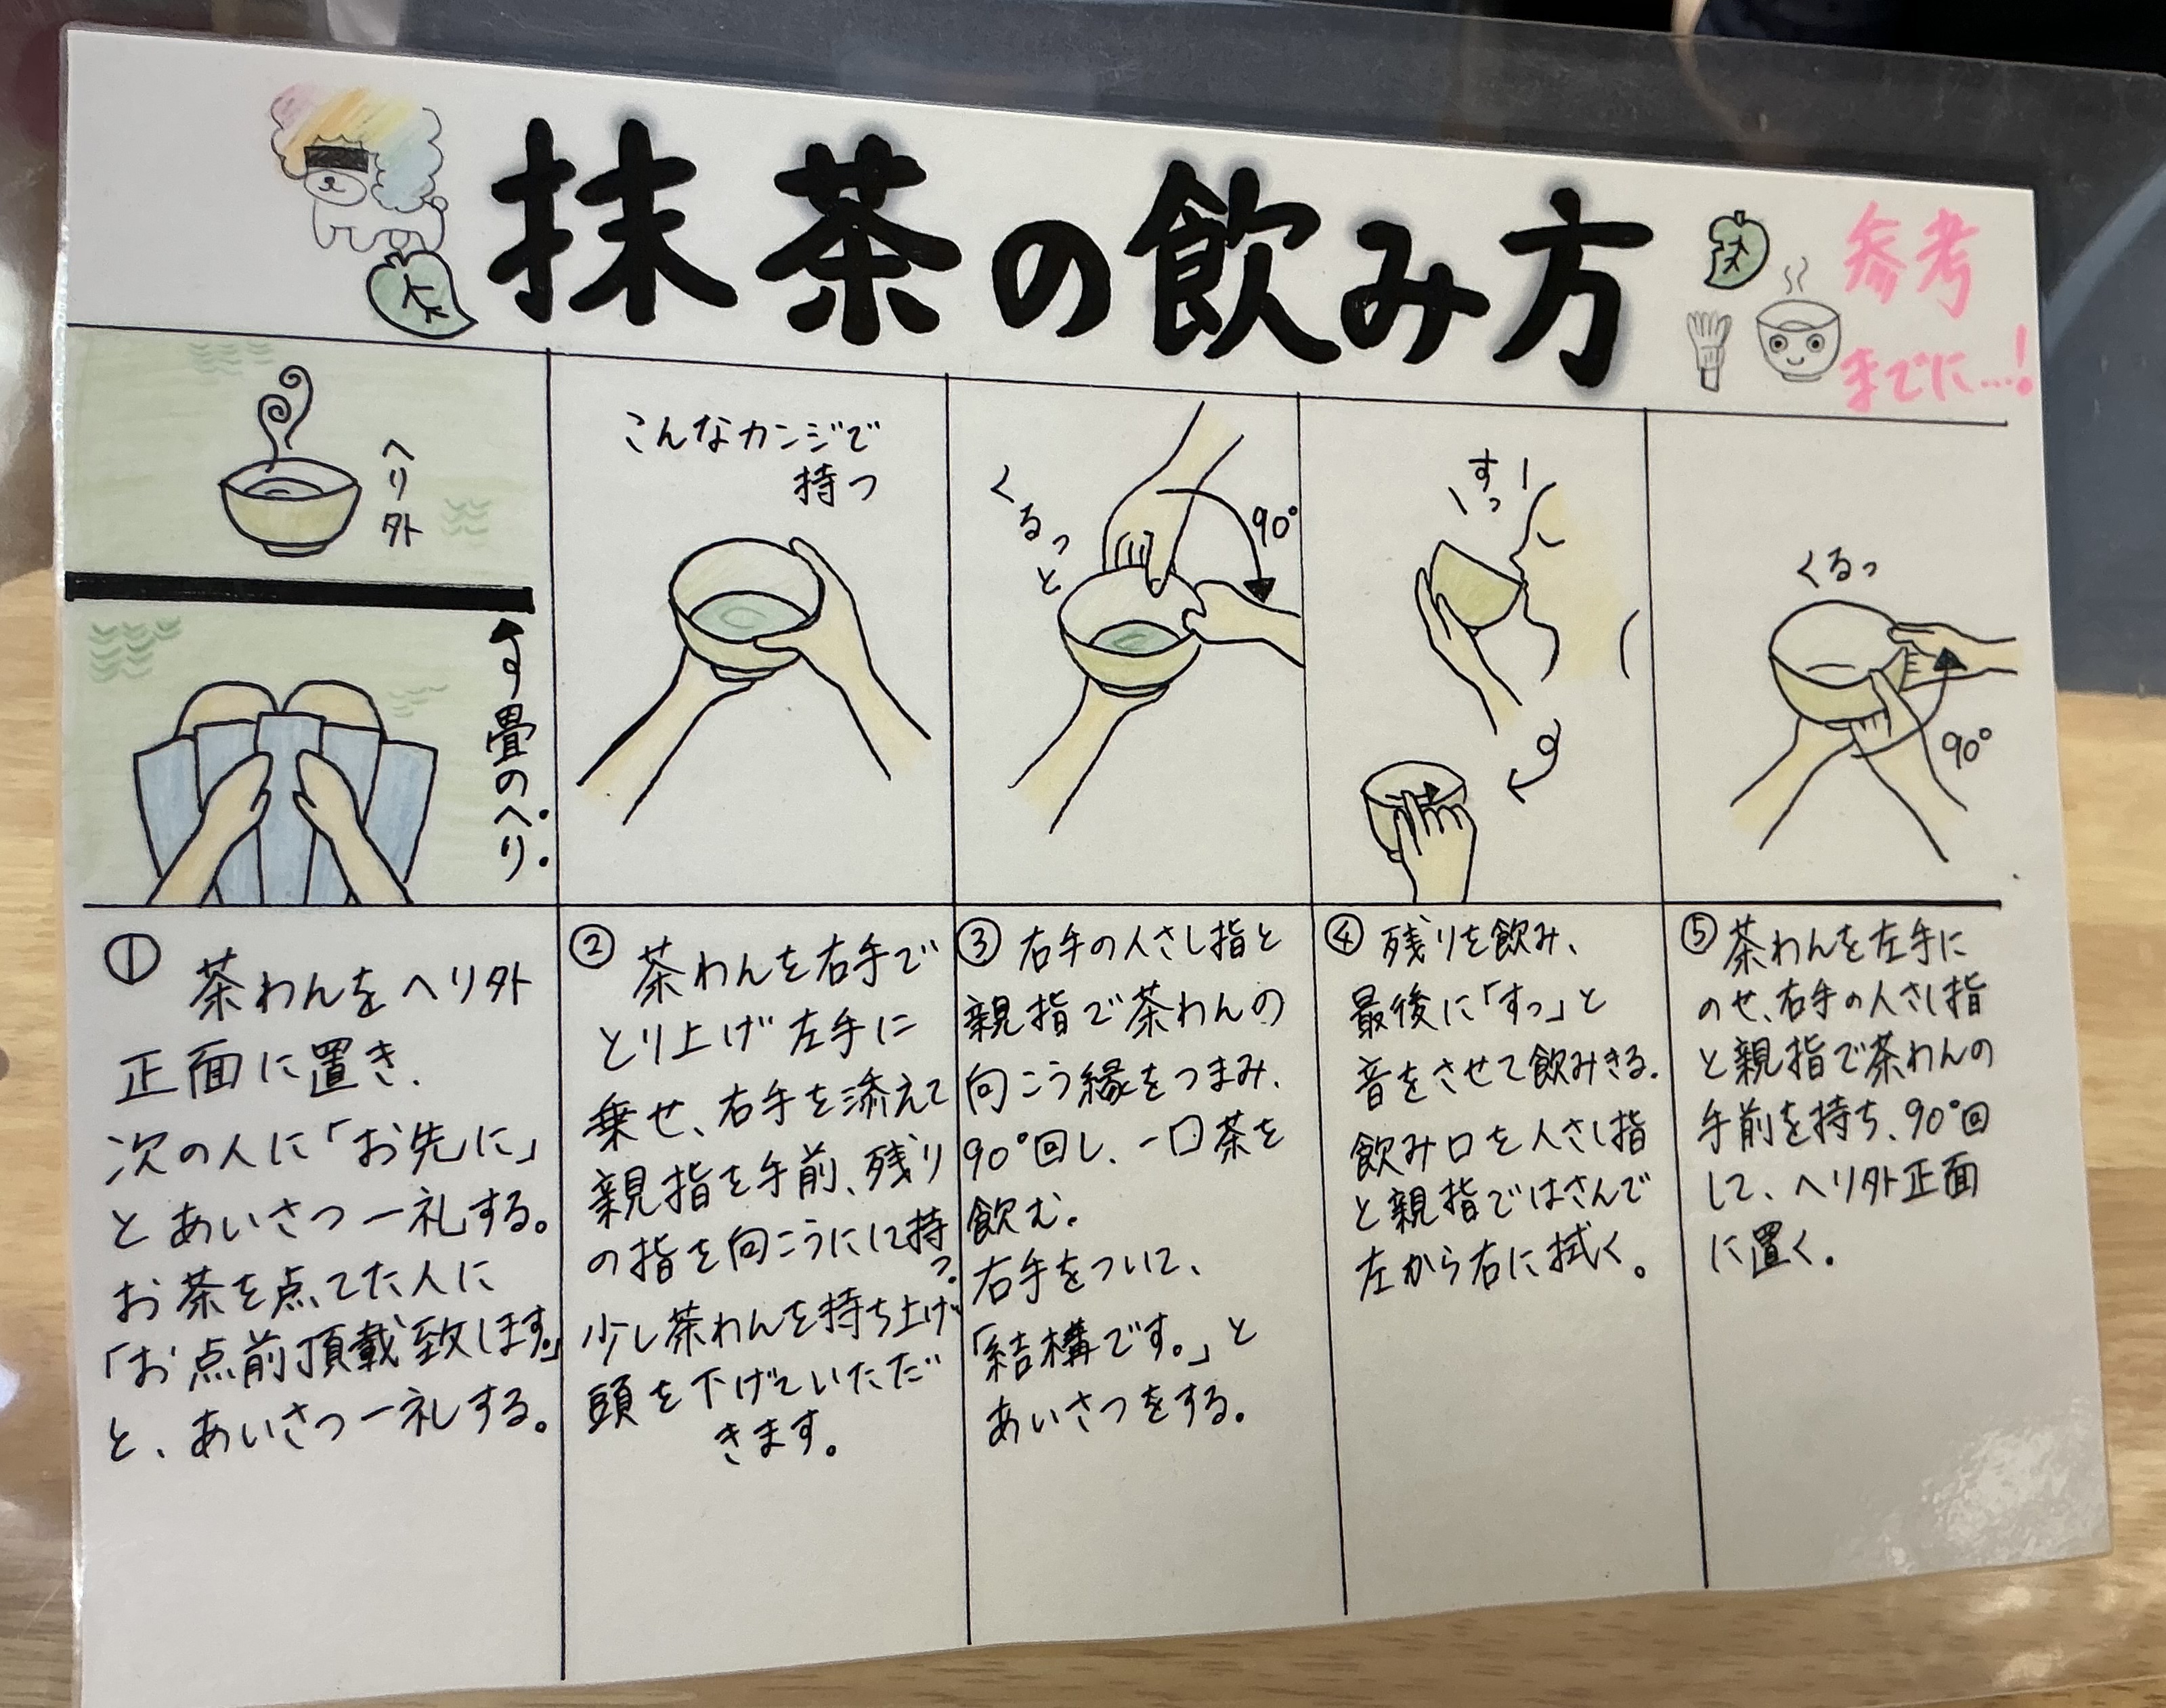 抹茶の飲み方
参考
までに…!
ヘリ外
畳のへり
こんなカンジで
持つ
くるっと
90°
すっ
くるっ
90°
① 茶わんをヘリ外
正面に置き、
次の人に「お先に」
とあいさつ一礼する。
お茶を点てた人に
「お点前頂戴致します。」
と、あいさつ一礼する。
② 茶わんを右手で
とり上げ左手に
乗せ、右手を添えて
親指を手前、残り
の指を向こうにに持
つ。
少し茶わんを持ち上げ
頭を下げていただ
きます。
③ 右手の人さし指と
親指で茶わんの
向こう縁をつまみ、
90°回し、一口茶を
飲む。
右手をついて、
「結構です。」と
あいさつをする。
④ 残りを飲み、
最後に「すっ」と
音をさせて飲みきる。
飲み口を人さし指
と親指ではさんで
左から右に拭く。
⑤ 茶わんを左手に
のせ、右手の人さし指
と親指で茶わんの
手前を持ち、90°回
して、ヘリ外正面
に置く。